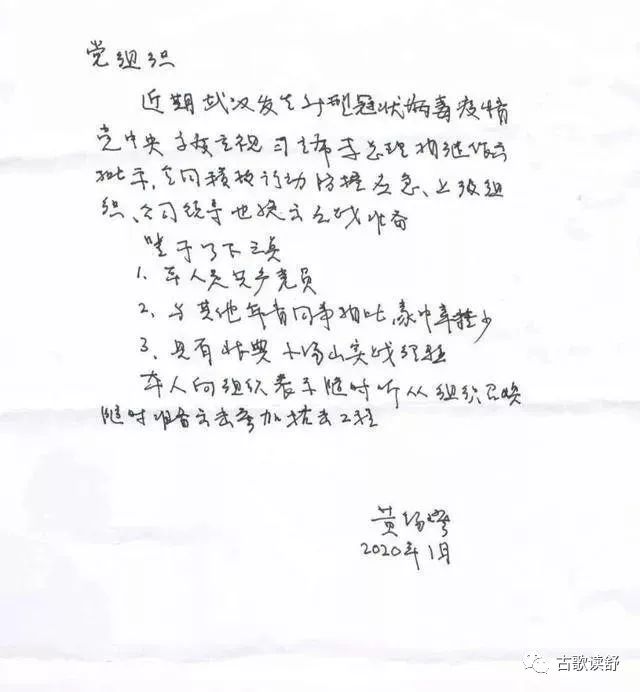 党组织
近期武汉发生新型冠状病毒疫情
党中央高度重视习主席李总理相继作出
批示,全国积极行动防控应急、上级组
织、公司领导也决定应战准备
鉴于以下三点
1. 本人是共产党员
2. 与其他年青同事相比,家中牵挂少
3. 具有非典小汤山实战经验
本人向组织表示随时听从组织召唤
随时准备出去参加抗击工程
黄
2020年1月
古歌读舒